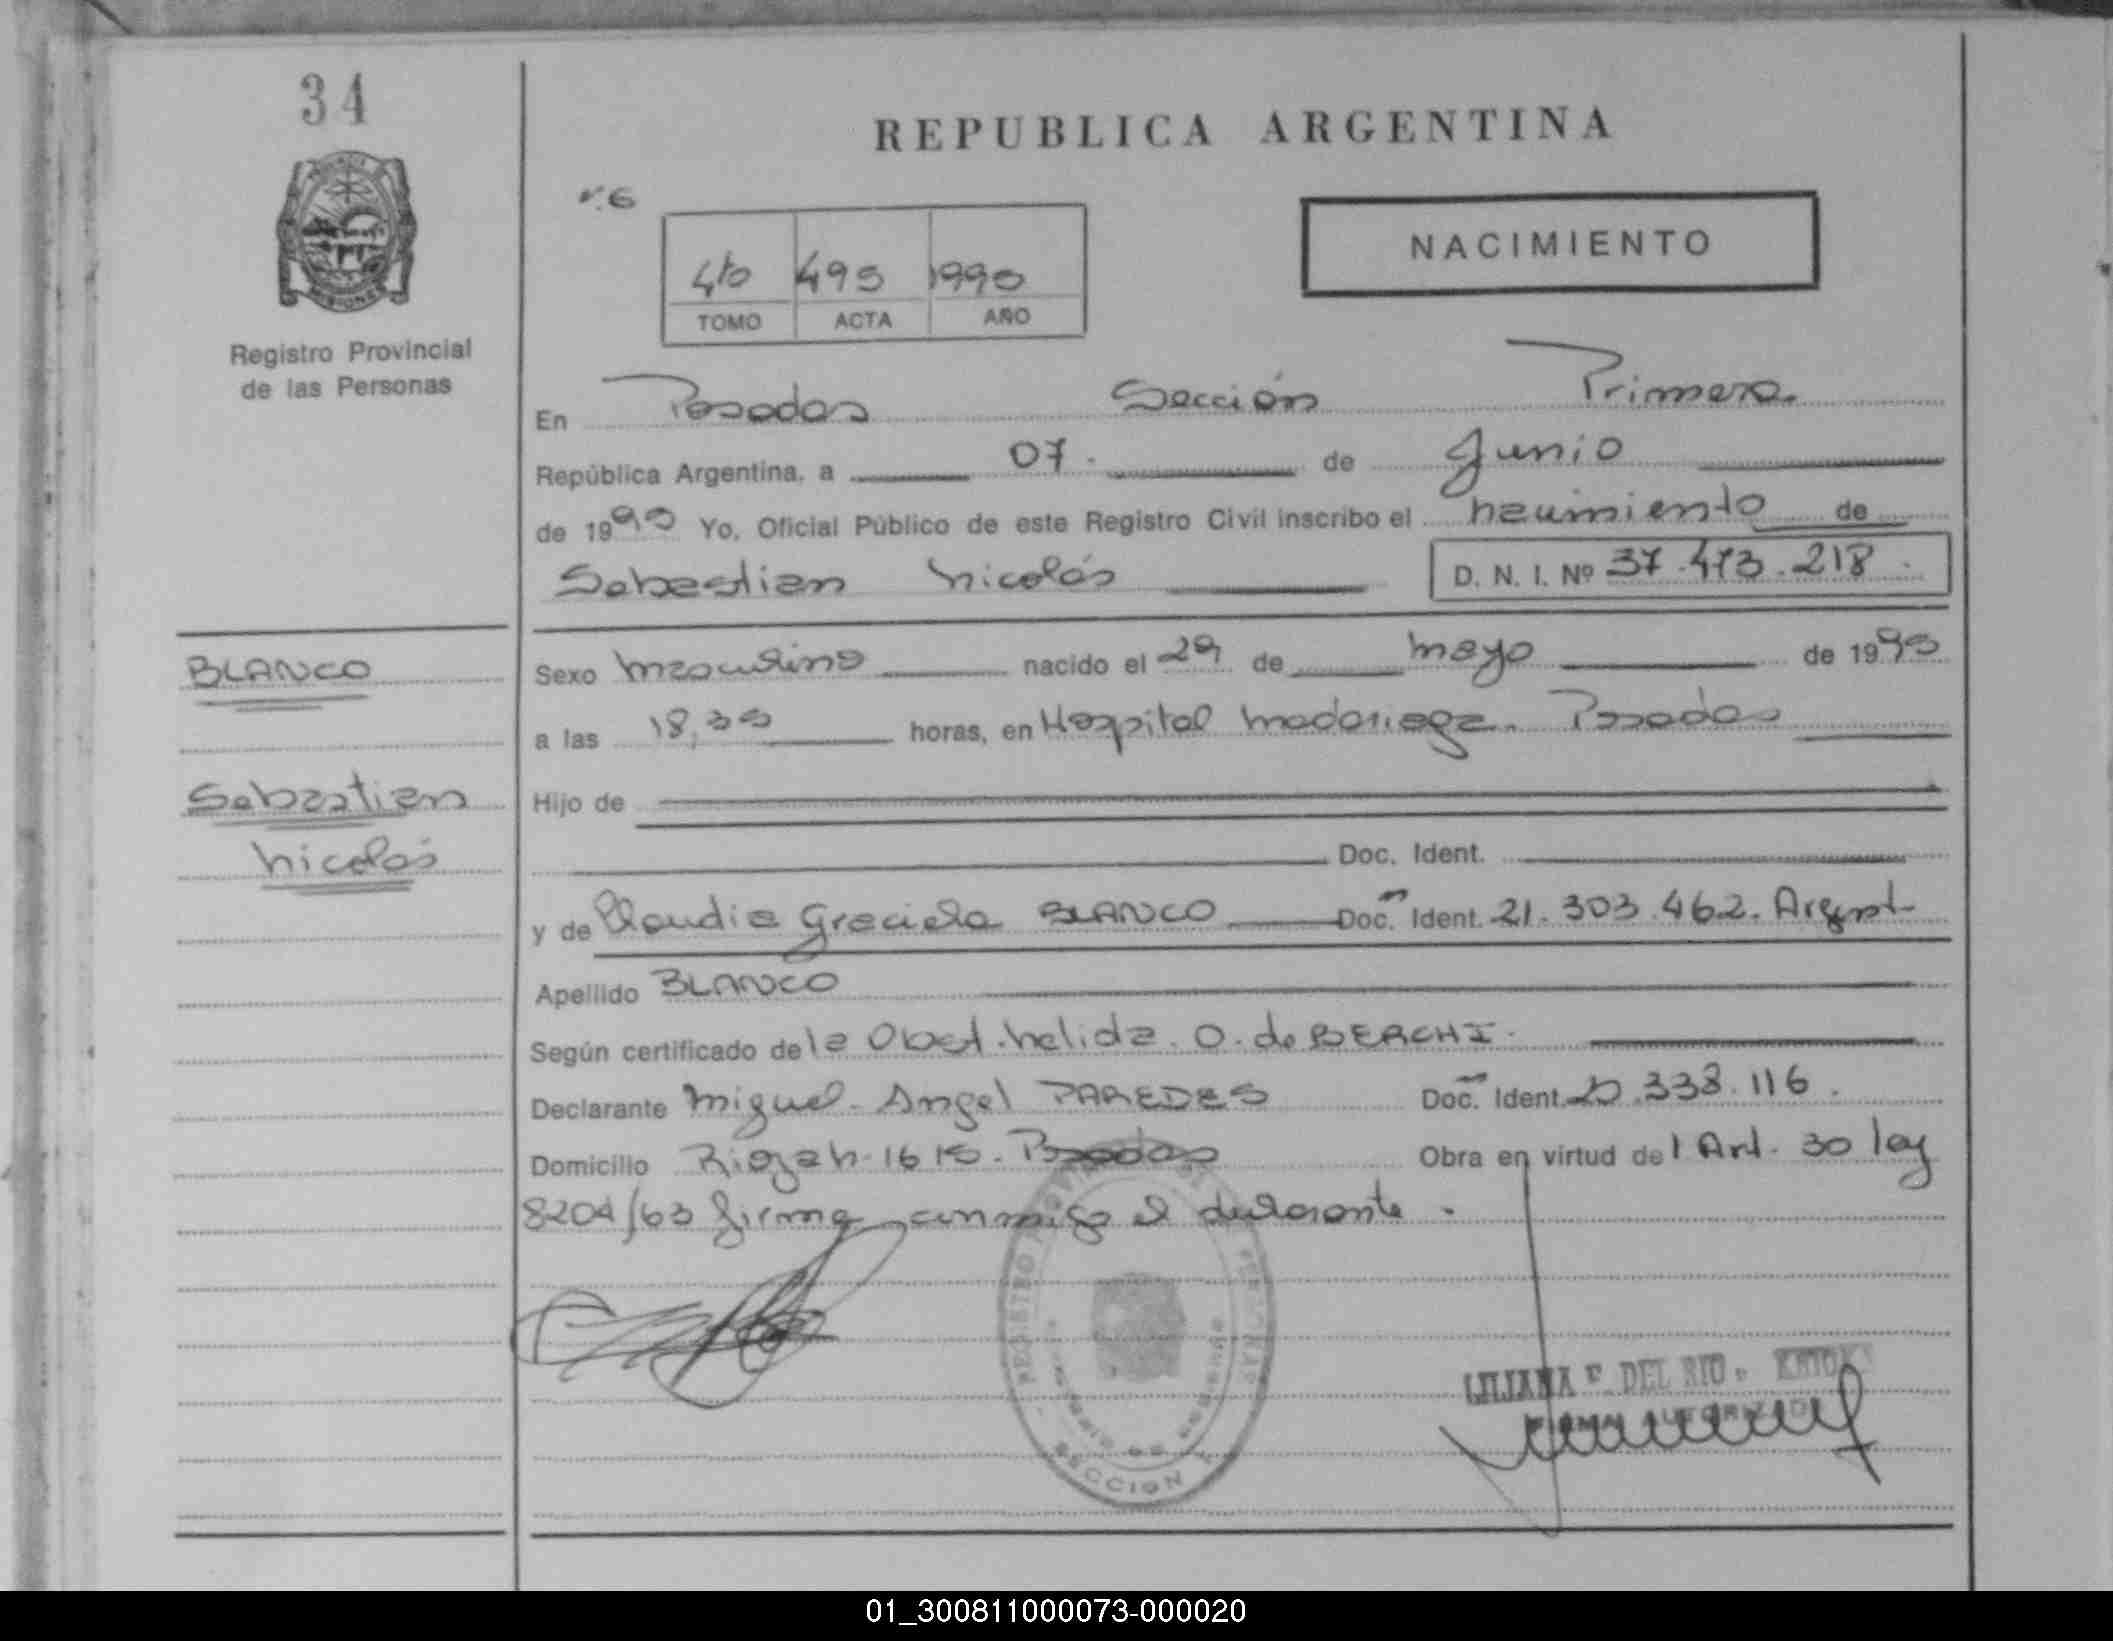 34
REPUBLICA ARGENTINA
NACIMIENTO
4to 495 1990
TOMO ACTA AÑO
Registro Provincial
de las Personas
En Posadas Sección Primera
República Argentina, a 07. de Junio
de 1990 Yo, Oficial Público de este Registro Civil inscribo el nacimiento de
Sebastian Nicolás D. N. I. Nº 37.473.218.
BLANCO
Sexo masculino nacido el 29 de mayo de 1990
a las 18,30 horas, en Hospital Madariaga. Posadas
Sebastian
Hijo de
Nicolás
Doc. Ident.
y de Claudia Graciela BLANCO Doc. Ident. 21.303.462. Argent
Apellido BLANCO
Según certificado de la Obst. Nelida. O. de BERCHI.
Declarante Miguel Angel PAREDES Doc. Ident. .338.116.
Domicilio 1615. Posadas Obra en virtud del Art. 30 ley
8204/63 firma conmigo el declarante.
REGISTRO PERSONAS
SECCION
LILIANA DEL RIO
01_300811000073-000020